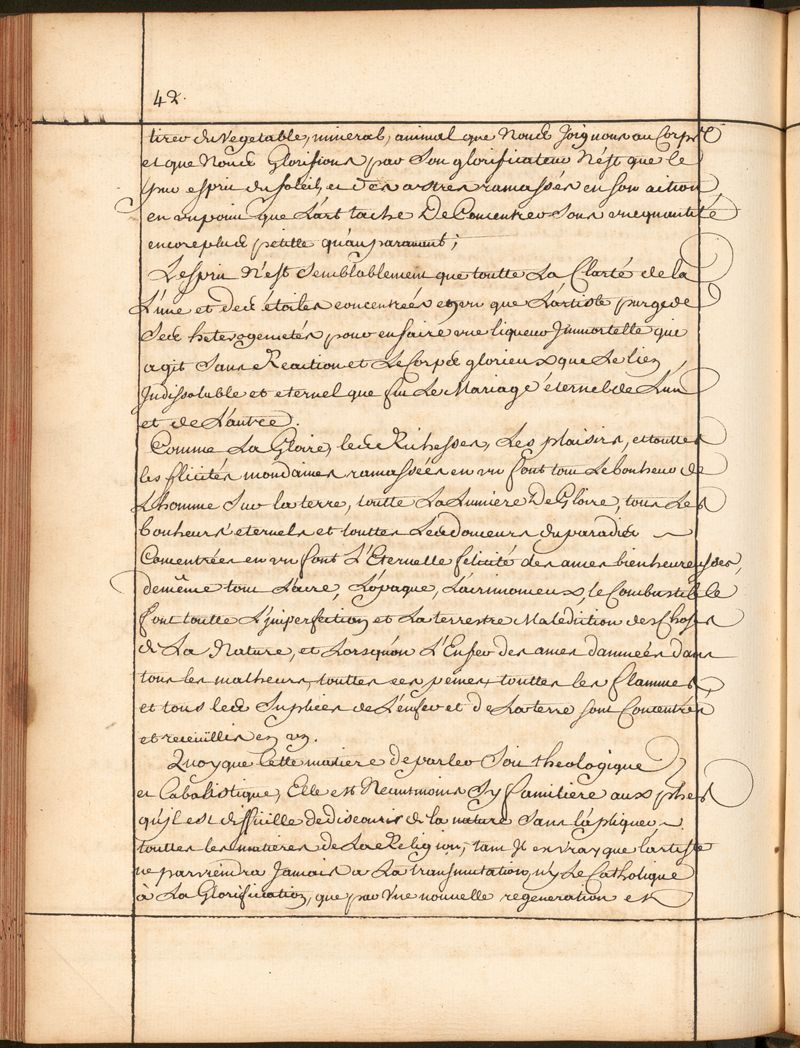 42.
tirer du Vegetable, mineral, animal que Nous Joignons au Corps
et que Nous Glorifions par Son glorificateur N'est que le
pur esprit du Soleil, et des astres ramassés en son action
en un point que L'art tache De Concentrer Sous une quantité
encore plus petitte qu'auparavant;
L'esprit N'est Semblablement que toutte La Clarté de la
L'une et des étoiles concentrées en un que L'artiste purge de
Ses heterogeneités pour en faire une liqueur Jmmortelle qui
agit Sans Reaction et Le Corps glorieux que Le lien
Jndissoluble et eternel que fit Le Mariage éternel de L'un
et de L'autre.
Comme La Gloire, les Richesses, Les plaisirs, et touttes
les flicités mondaines ramassées en un font tout Le bonheur de
L'homme Sur la terre, toutte La Lumiere De Gloire, tous Les
bonheurs eternels et touttes Les douceurs du paradis
Concentrées en un font L'Eternelle felicité des ames bienheureuses,
demême tout L'acre, L'opaque, L'acrimonieux, le Combustible
font toutte L'jmperfection et La terrestre Malediction des Choses
de La Nature, et Lorsqu'on L'Enfer des ames damnées dans
tous les malheurs, touttes ses peines, touttes les flammes,
et tous les Suplices de L'enfer et De La terre sont Concentrés
et receüillis en un.
Quoyque Cette matiere de parler Soit theologique
et Cabalistique, Elle est Neantmoins Sy familiere aux phes
qu'jl est difficille de Discourir de la nature Sans l'apliquer
touttes les matieres de La Religion, tant Jl est vray que l'artiste
ne parviendra Jamais a La transmutation, n'y Le Catholique
à La Glorification, que par Une nouvelle regeneration et